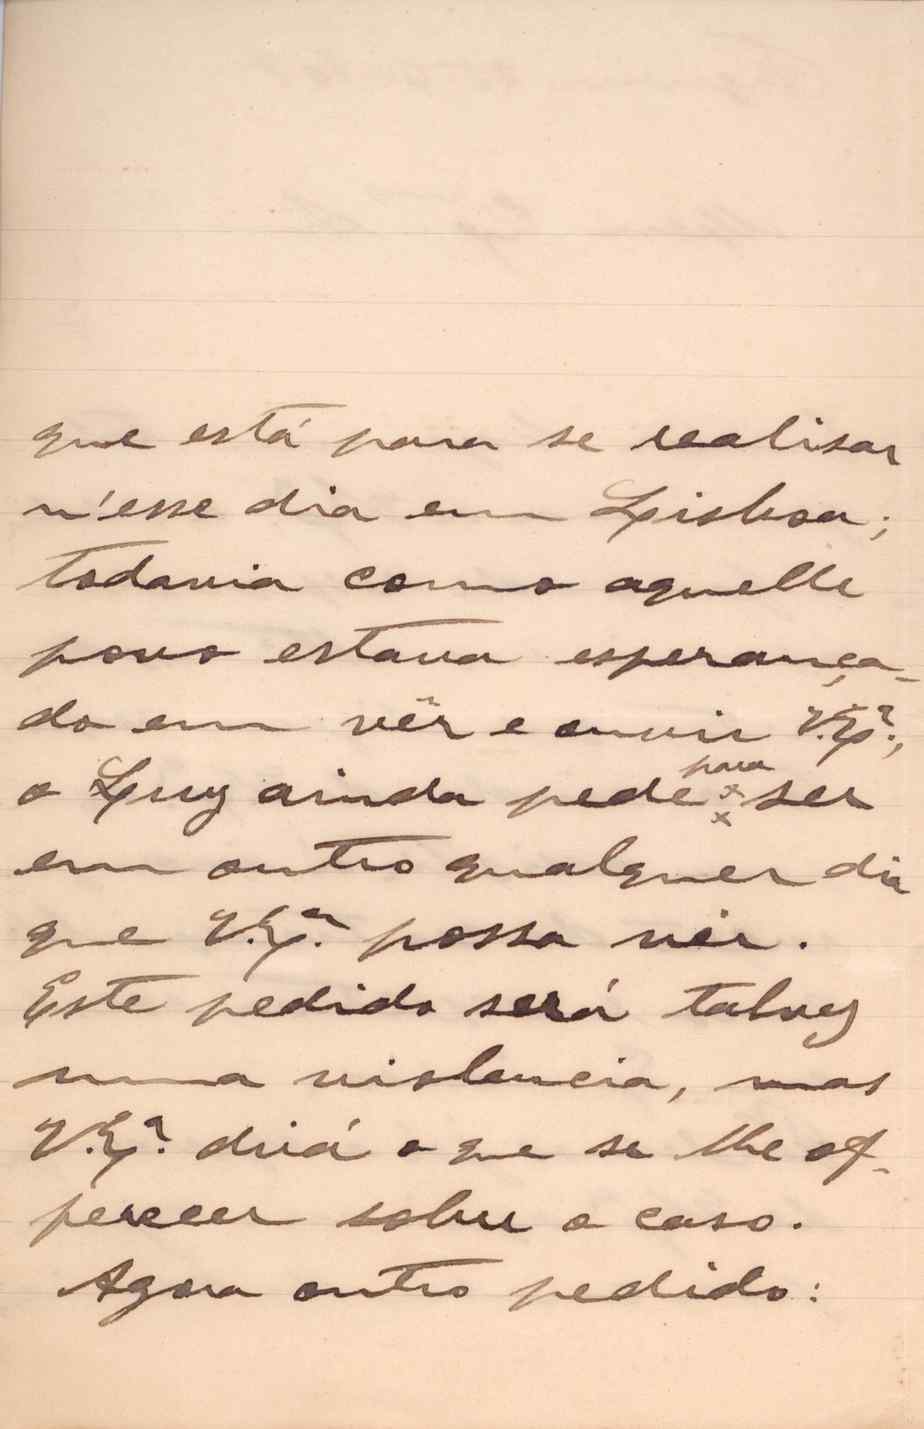 que está para se realisar
n'esse dia em Lisboa;
todavia como aquelle
povo estava esperança-
do em vêr e ouvir V. Ex.ª,
o Luy ainda pede para ser
em outro qualquer dia
que V. Ex.ª possa vir.
Este pedido será talvez
uma violencia, mas
V. Ex.ª dirá o que se lhe of-
ferecer sobre o caso.
Agora outro pedido: